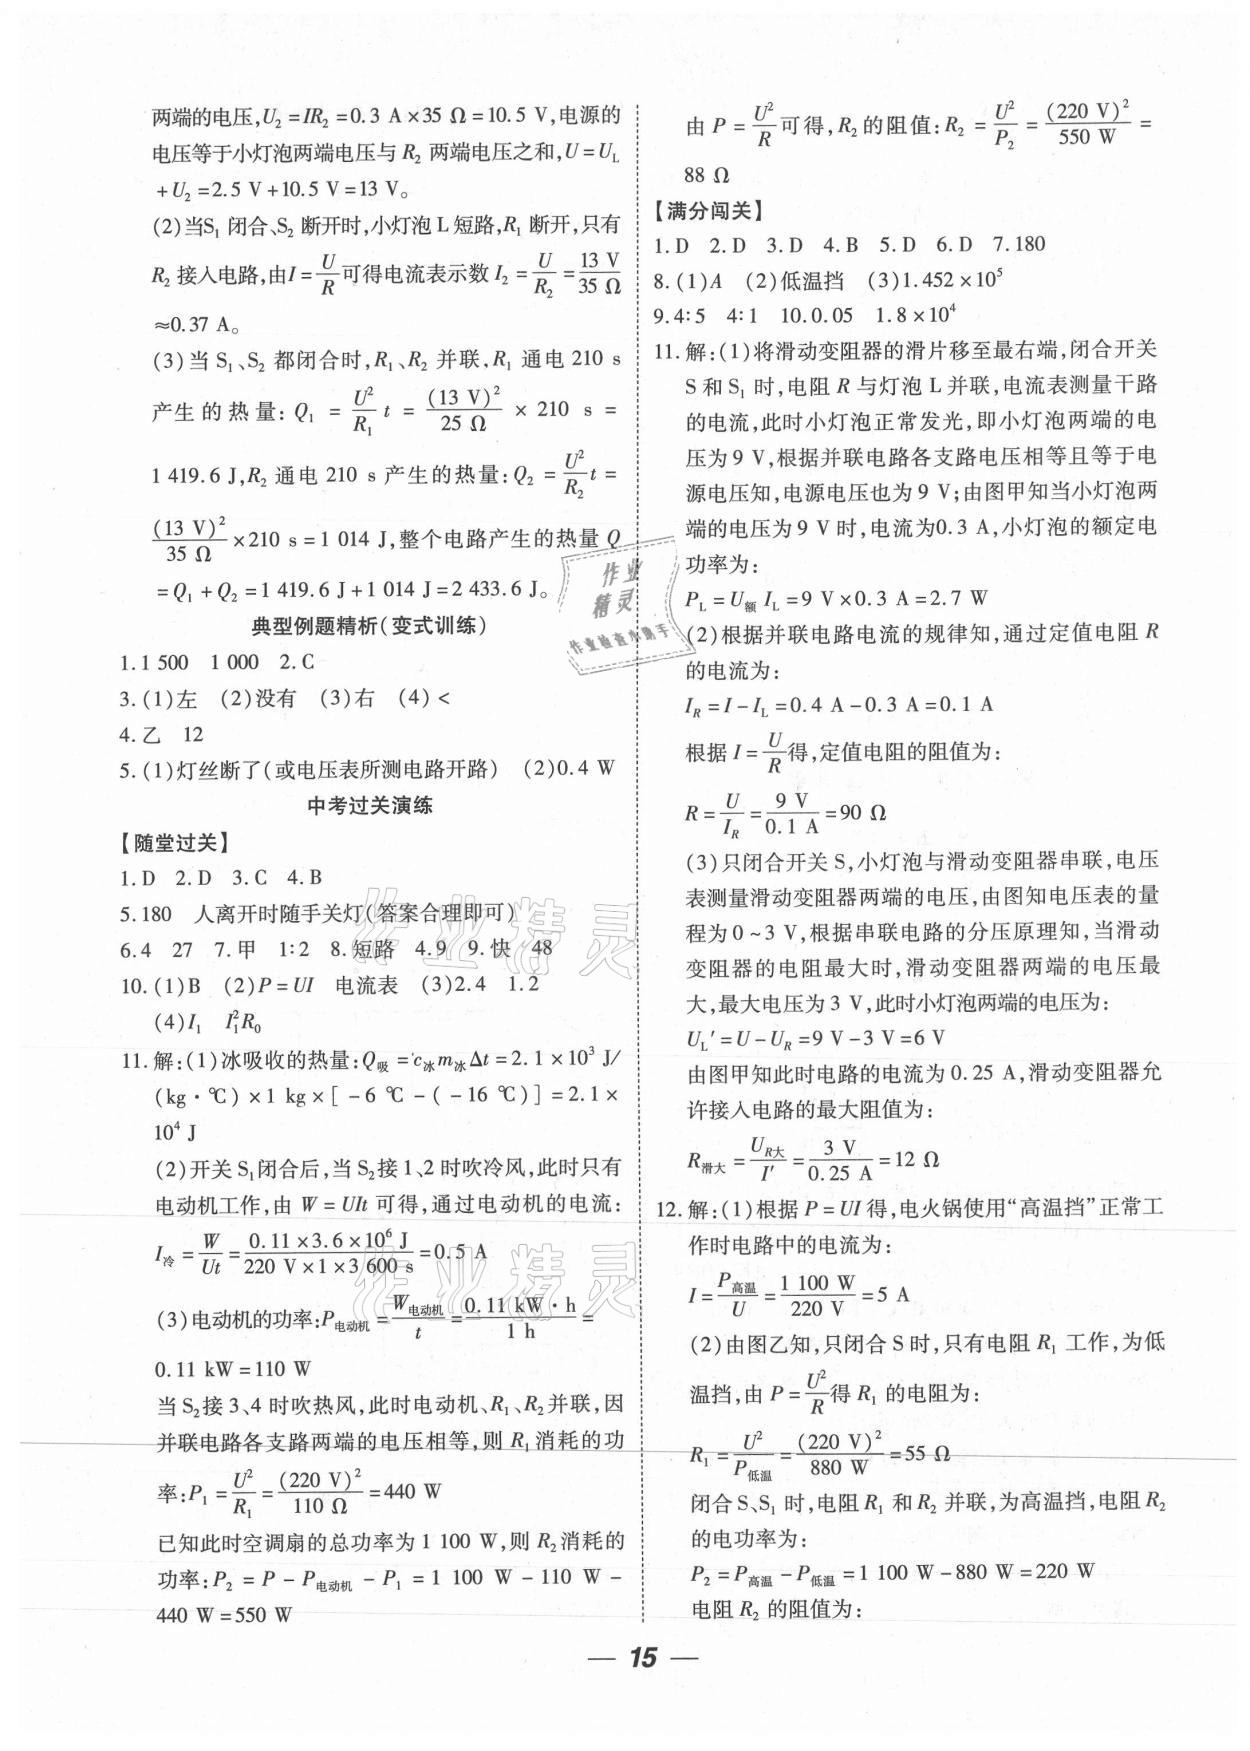 两端的电压,U₂=IR₂=0.3 A×35 Ω=10.5 V,电源的
电压等于小灯泡两端电压与 R₂ 两端电压之和,U=U_L
+U₂=2.5 V+10.5 V=13 V。
(2)当S₁ 闭合、S₂ 断开时,小灯泡 L 短路,R₁ 断开,只有
R₂ 接入电路,由I=U/R可得电流表示数 I₂=U/R₂=13 V/35 Ω
≈0.37 A。
(3)当 S₁、S₂ 都闭合时,R₁、R₂ 并联,R₁ 通电 210 s
产生的热量: Q₁ = U²/R₁ t = (13 V)²/25 Ω × 210 s =
1 419.6 J,R₂ 通电 210 s 产生的热量:Q₂=U²/R₂ t=
(13 V)²/35 Ω×210 s=1 014 J,整个电路产生的热量 Q
=Q₁+Q₂=1 419.6 J+1 014 J=2 433.6 J。
典型例题精析(变式训练)
1.1 500 1 000 2.C
3.(1)左 (2)没有 (3)右 (4)<
4.乙 12
5.(1)灯丝断了(或电压表所测电路开路) (2)0.4 W
中考过关演练
【随堂过关】
1.D 2.D 3.C 4.B
5.180 人离开时随手关灯(答案合理即可)
6.4 27 7.甲 1∶2 8.短路 4.9 9.快 48
10.(1)B (2)P=UI 电流表 (3)2.4 1.2
(4)I₁ I₁²R₀
11.解:(1)冰吸收的热量:Q吸=c冰m冰Δt=2.1×10³ J/
(kg·℃)×1 kg×[-6 ℃-(-16 ℃)]=2.1×
10⁴ J
(2)开关 S₁闭合后,当 S₂接 1、2 时吹冷风,此时只有
电动机工作,由 W=UIt 可得,通过电动机的电流:
I冷=W/Ut=0.11×3.6×10⁶ J/220 V×1×3 600 s=0.5 A
(3)电动机的功率:P电动机=W电动机/t=0.11 kW·h/1 h=
0.11 kW=110 W
当 S₂接 3、4 时吹热风,此时电动机、R₁、R₂并联,因
并联电路各支路两端的电压相等,则 R₁消耗的功
率:P₁=U²/R₁=(220 V)²/110 Ω=440 W
已知此时空调扇的总功率为 1 100 W,则 R₂消耗的
功率:P₂=P-P电动机-P₁=1 100 W-110 W-
440 W=550 W
由 P=U²/R可得,R₂ 的阻值:R₂=U²/P₂=(220 V)²/550 W=
88 Ω
【满分闯关】
1.D 2.D 3.D 4.B 5.D 6.D 7.180
8.(1)A (2)低温挡 (3)1.452×10⁵
9.4∶5 4∶1 10.0.05 1.8×10⁴
11.解:(1)将滑动变阻器的滑片移至最右端,闭合开关
S 和 S₁ 时,电阻 R 与灯泡 L 并联,电流表测量干路
的电流,此时小灯泡正常发光,即小灯泡两端的电
压为 9 V,根据并联电路各支路电压相等且等于电
源电压知,电源电压也为 9 V;由图甲知当小灯泡两
端的电压为 9 V 时,电流为0.3 A,小灯泡的额定电
功率为:
P_L=U额 I_L=9 V×0.3 A=2.7 W
(2)根据并联电路电流的规律知,通过定值电阻 R
的电流为:
I_R=I-I_L=0.4 A-0.3 A=0.1 A
根据 I=U/R得,定值电阻的阻值为:
R=U/I_R=9 V/0.1 A=90 Ω
(3)只闭合开关 S,小灯泡与滑动变阻器串联,电压
表测量滑动变阻器两端的电压,由图知电压表的量
程为 0~3 V,根据串联电路的分压原理知,当滑动
变阻器的电阻最大时,滑动变阻器两端的电压最
大,最大电压为 3 V,此时小灯泡两端的电压为:
U_L′=U-U_R=9 V-3 V=6 V
由图甲知此时电路的电流为 0.25 A,滑动变阻器允
许接入电路的最大阻值为:
R滑大=U_R大/I′=3 V/0.25 A=12 Ω
12.解:(1)根据 P=UI 得,电火锅使用“高温挡”正常工
作时电路中的电流为:
I=P高温/U=1 100 W/220 V=5 A
(2)由图乙知,只闭合 S 时,只有电阻 R₁ 工作,为低
温挡,由 P=U²/R得 R₁ 的电阻为:
R₁=U²/P低温=(220 V)²/880 W=55 Ω
闭合S、S₁ 时,电阻 R₁ 和 R₂ 并联,为高温挡,电阻 R₂
的电功率为:
P₂=P高温-P低温=1 100 W-880 W=220 W
电阻 R₂ 的阻值为:
— 15 —
作业
精灵
作业检查小助手
作业精灵
作业精灵